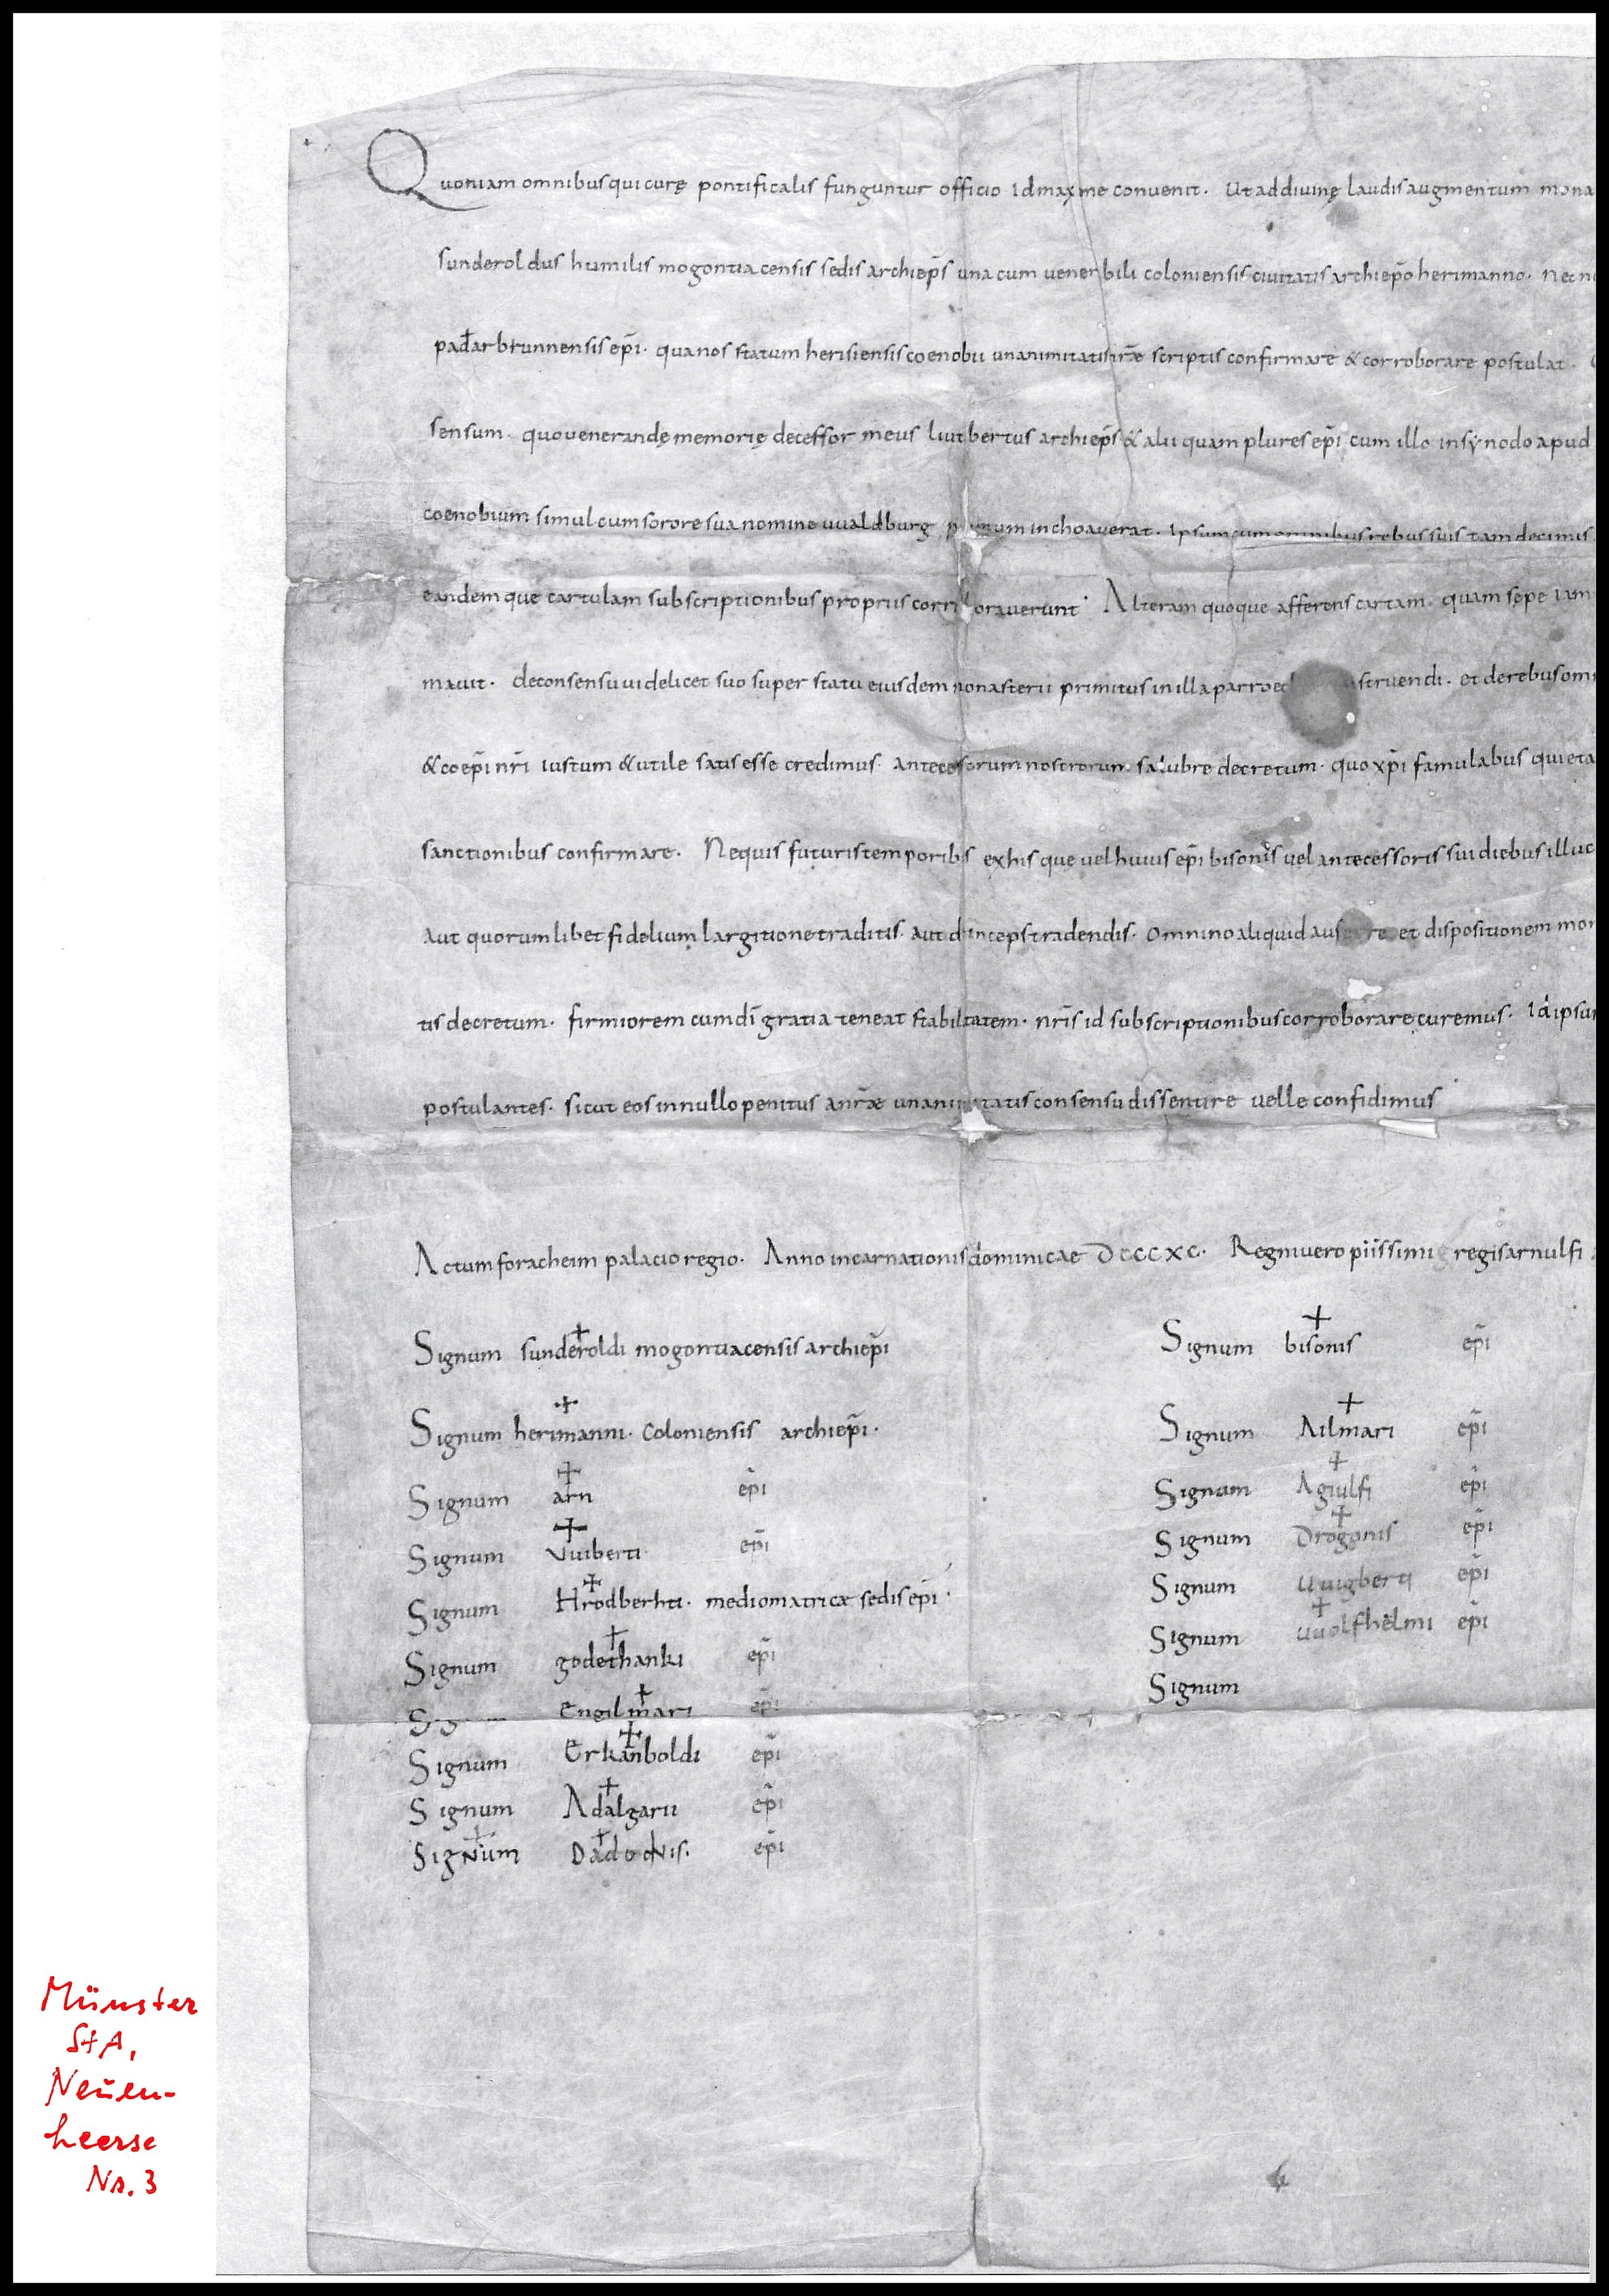 Quoniam omnibus qui curę pontificalis funguntur officio id maxme convenit. Ut ad divinę laudis augmentum mona
sunderoldus humilis mogontiacensis sedis archiep̄s una cum venerbili coloniensis civitatis archiep̄o herimanno. nec n
padarbrunnensis ep̄i. qua nos statum herisiensis coenobii unanimitatis nr̄ae scriptis confirmare & corroborare postulat.
sensum. quo venerandę memorię decessor meus liutbertus archiep̄s & alii quam plures ep̄i cum illo in synodo apud
coenobium simul cum sorore sua nomine uualdburg inchoaverat. Ipsum cum omnibus rebus suis tam decimis
eandemque cartulam subscriptionibus propriis corr oraverunt. Alteram quoque afferens cartam. quam sepe iam
mavit. de consensu videlicet suo super statu eiusdem monasterii primitus in illa parroec struendi. et de rebus om
& coep̄i nr̄i iustum & utile satis esse credimus. antecessorum nostrorum salubre decretum. quo xp̄i famulabus quieta
sanctionibus confirmare. Nequis futuris temporibs ex his quę vel huius ep̄i bisonis vel antecessoris sui diebus illuc
aut quorumlibet fidelium largitione traditis. aut dinceps tradendis. omnino aliquid aus re et dispositionem mon
tis decretum. firmiorem cum dī gratia teneat stabilitatem. nr̄is id subscriptionibus corroborare curemus. Id ipsu
postulantes. sicut eos in nullo penitus a nr̄ae unanimitatis consensu dissentire velle confidimus
Actum foracheim palacio regio. Anno incarnationis dominicae DCCCXC. Regni vero piissimi regis arnulfi
Signum sunderoldi mogontiacensis archiep̄i
Signum herimanni. coloniensis archiep̄i.
Signum arn ep̄i
Signum Vuiberti ep̄i
Signum Hrodberhti. mediomatricae sedis ep̄i.
Signum godethanki ep̄i
Engilmari ep̄i
Signum Erkanboldi ep̄i
Signum Adalgarii ep̄i
Signum Dadonis. ep̄i
Signum bisonis ep̄i
Signum Ailmari ep̄i
Signum Agiulfi ep̄i
Signum Drogonis ep̄i
Signum Uuigberti ep̄i
Signum Uuolfhelmi ep̄i
Signum
Münster
StA,
Neuen-
heerse
Nr. 3